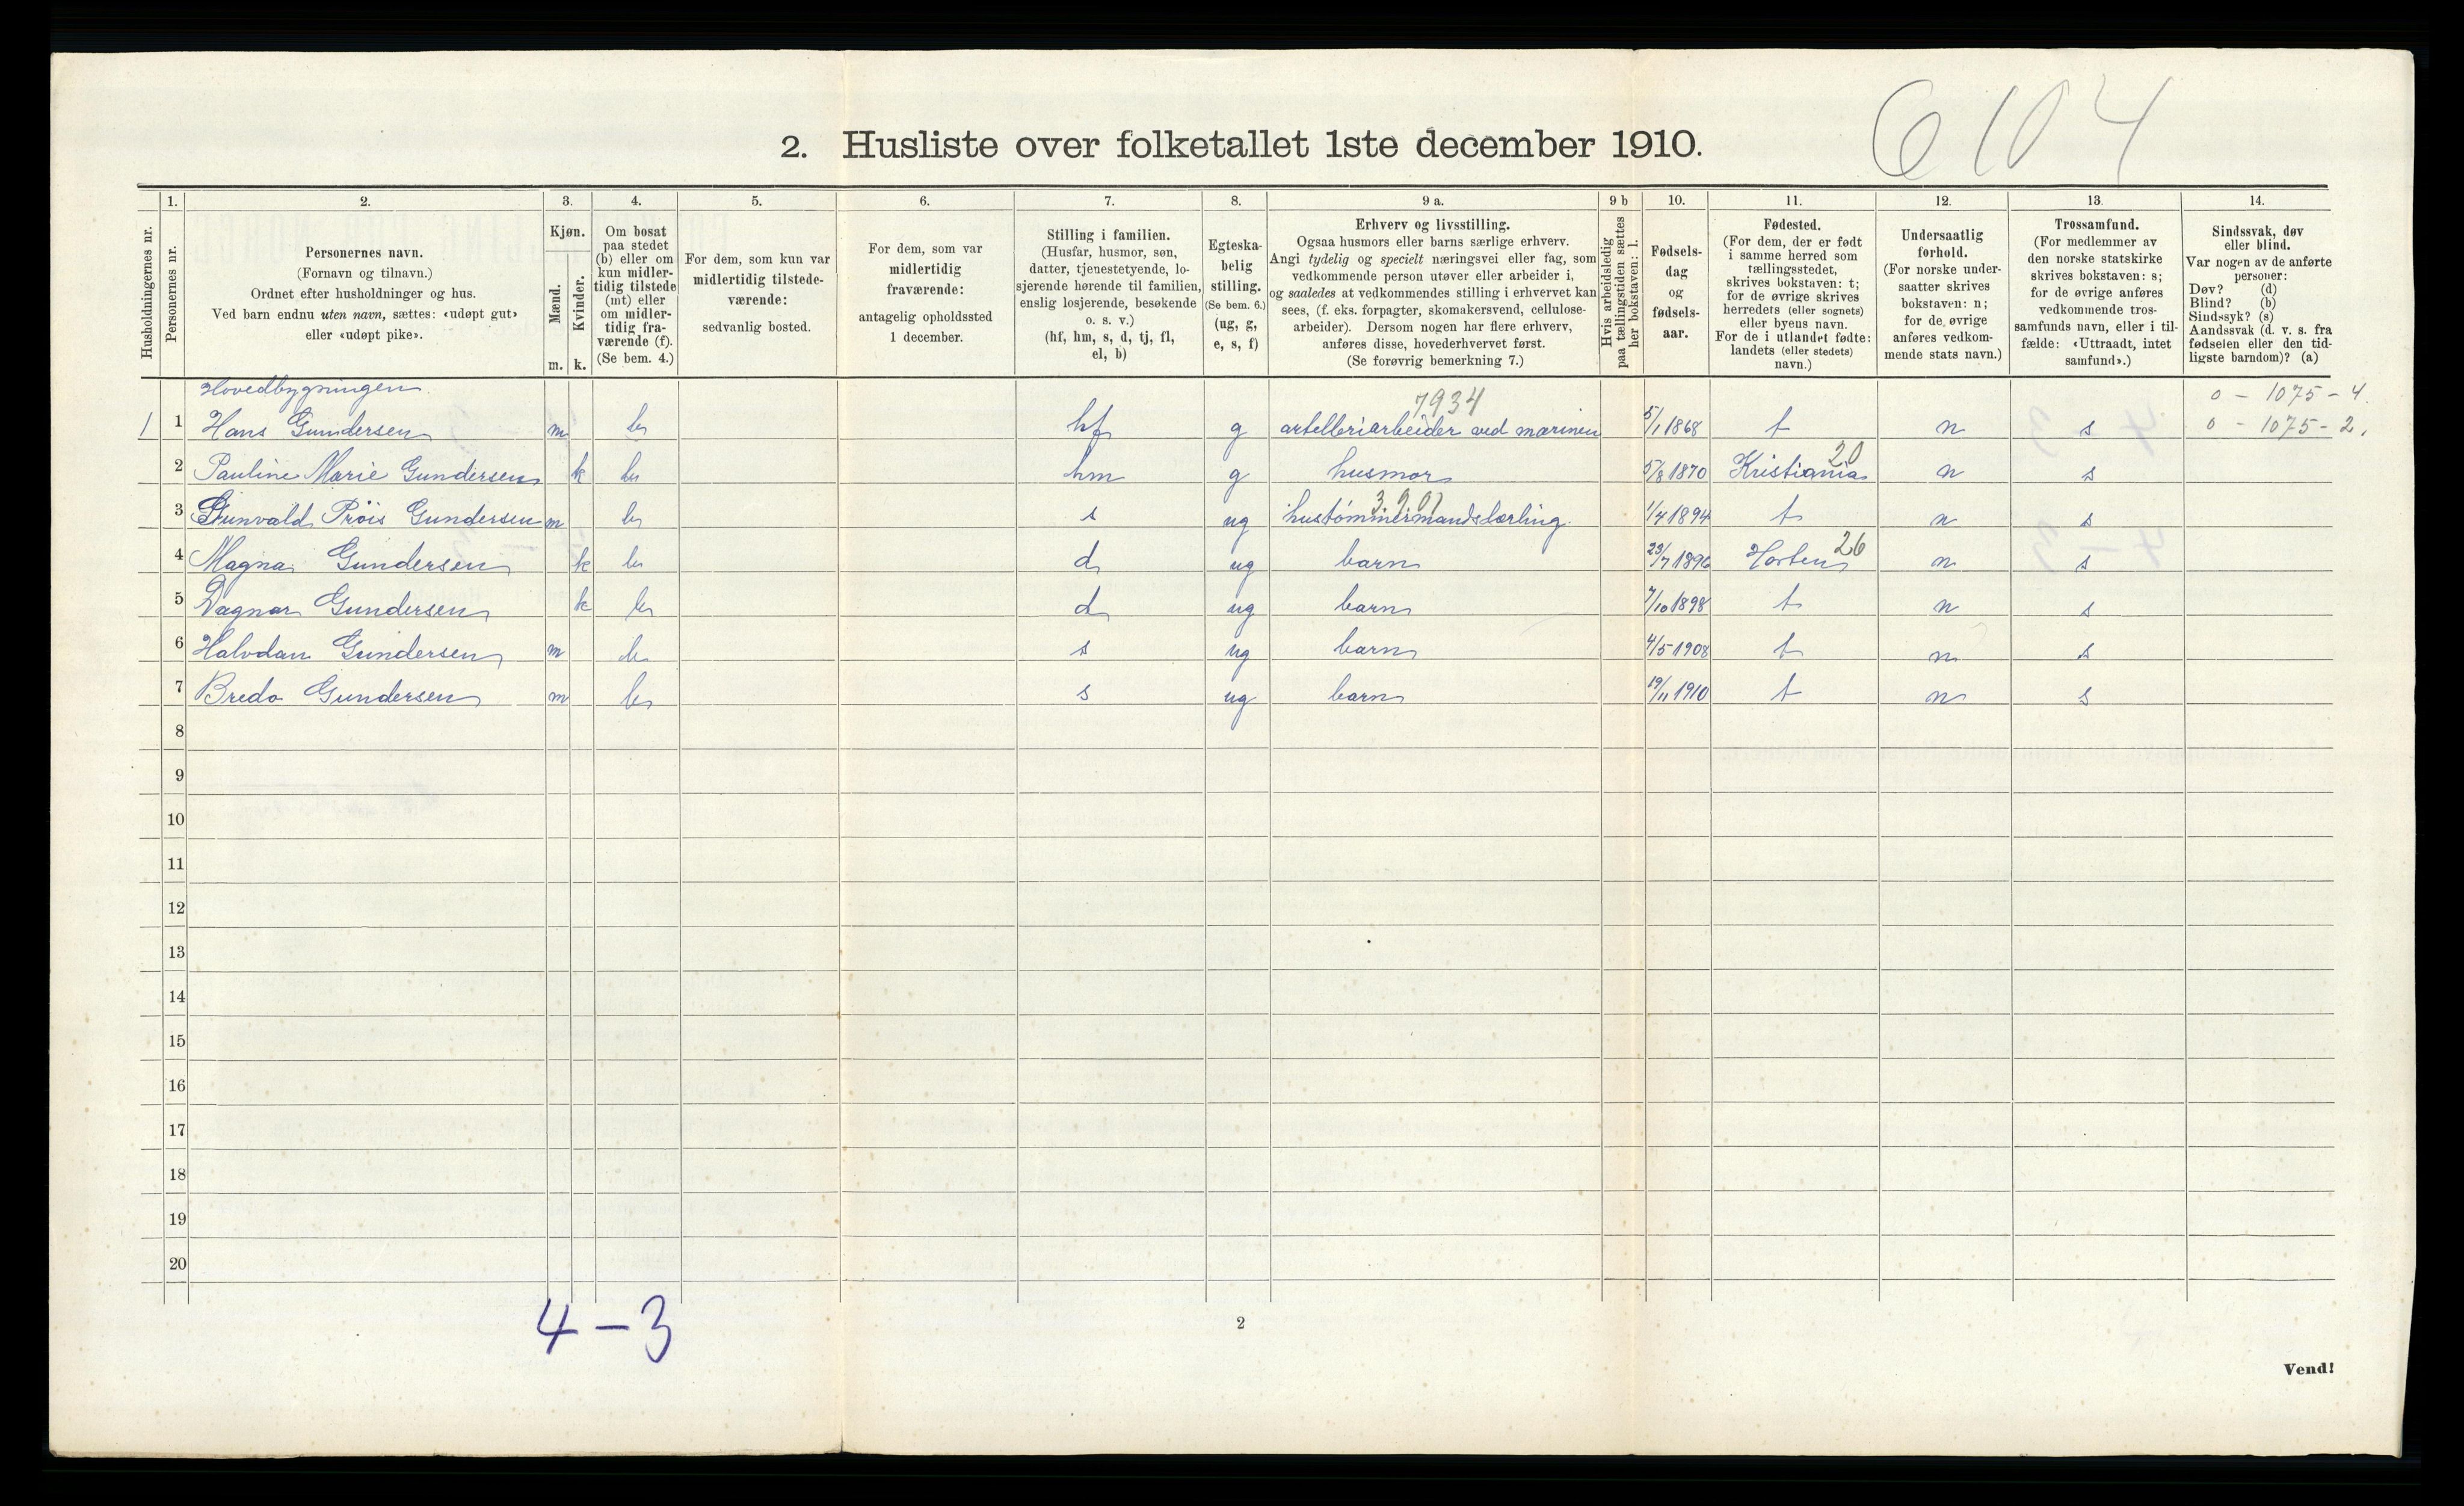 6104
2. Husliste over folketallet 1ste december 1910.
Husholdningernes nr.
1.
Personernes nr.
2.
Personernes navn.
(Fornavn og tilnavn.)
Ordnet efter husholdninger og hus.
Ved barn endnu uten navn, sættes: «udøpt gut»
eller «udøpt pike».
3.
Kjøn.
Mænd.
Kvinder.
m. k.
4.
Om bosat
paa stedet
(b) eller om
kun midler-
tidig tilstede
(mt) eller
om midler-
tidig fra-
værende (f).
(Se bem. 4.)
5.
For dem, som kun var
midlertidig tilstede-
værende:
sedvanlig bosted.
6.
For dem, som var
midlertidig
fraværende:
antagelig opholdssted
1 december.
7.
Stilling i familien.
(Husfar, husmor, søn,
datter, tjenestetyende, lo-
sjerende hørende til familien,
enslig losjerende, besøkende
o. s. v.)
(hf, hm, s, d, tj, fl,
el, b)
8.
Egteska-
belig
stilling.
(Se bem. 6.)
(ug, g,
e, s, f)
9 a.
Erhverv og livsstilling.
Ogsaa husmors eller barns særlige erhverv.
Angi tydelig og specielt næringsvei eller fag, som
vedkommende person utøver eller arbeider i,
og saaledes at vedkommendes stilling i erhvervet kan
sees, (f. eks. forpagter, skomakersvend, cellulose-
arbeider). Dersom nogen har flere erhverv,
anføres disse, hovederhvervet først.
(Se forøvrig bemerkning 7.)
9 b
Hvis arbeidsledig
paa tællingstiden sættes
her bokstaven: l.
10.
Fødsels-
dag
og
fødsels-
aar.
11.
Fødested.
(For dem, der er født
i samme herred som
tællingsstedet,
skrives bokstaven: t;
for de øvrige skrives
herredets (eller sognets)
eller byens navn.
For de i utlandet fødte:
landets (eller stedets)
navn.)
12.
Undersaatlig
forhold.
(For norske under-
saatter skrives
bokstaven: n;
for de øvrige
anføres vedkom-
mende stats navn.)
13.
Trossamfund.
(For medlemmer av
den norske statskirke
skrives bokstaven: s;
for de øvrige anføres
vedkommende tros-
samfunds navn, eller i til-
fælde: «Uttraadt, intet
samfund».)
14.
Sindssvak, døv
eller blind.
Var nogen av de anførte
personer:
Døv? (d)
Blind? (b)
Sindssyk? (s)
Aandssvak (d. v. s. fra
fødselen eller den tid-
ligste barndom)? (a)
Hovedbygningen
7934
0 - 1075 - 4.
1 1 Hans Gundersen m b hf g artelleriarbeider ved marinen 5/1 1868 t n s 0 - 1075 - 2.
20
2 Pauline Marie Gundersen k b hm g husmor 5/8 1870 Kristiania n s
3901
3 Gunvald Pröis Gundersen m b s ug hustömmermandslærling. 1/4 1894 t n s
26
4 Magna Gundersen k b d ug barn 23/7 1896 Horten n s
5 Dagnar Gundersen k b d ug barn 7/10 1898 t n s
6 Halvdan Gundersen m b s ug barn 4/5 1908 t n s
7 Bredo Gundersen m b s ug barn 19/11 1910 t n s
8
9
10
11
12
13
14
15
16
17
18
19
20
4 - 3
2
Vend!